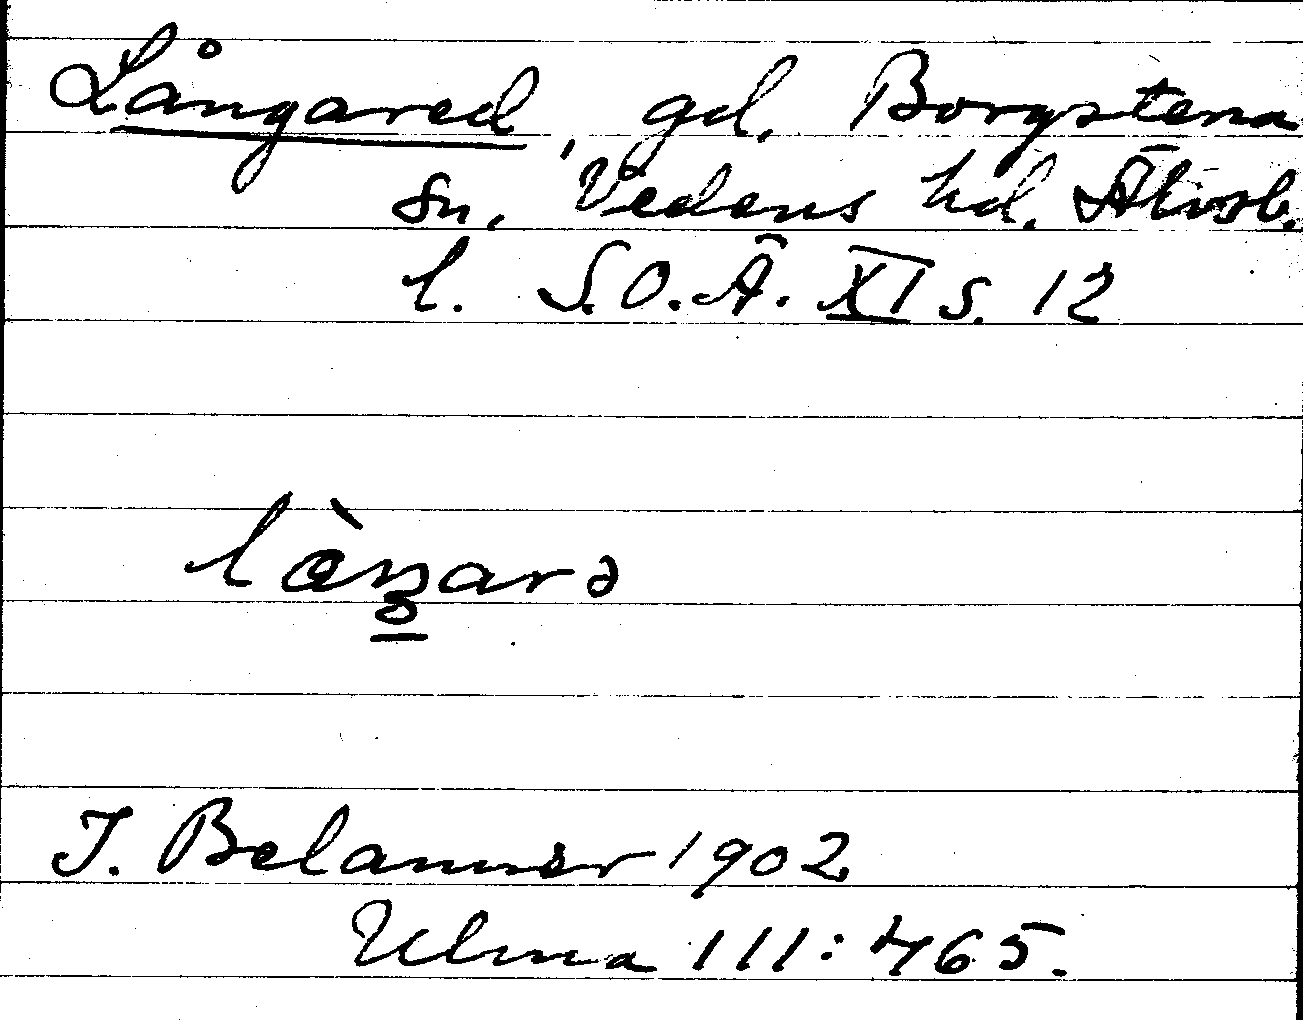 Långared, gd. Borgstena
sn, Vedens hd. Älvsb.
l. S.O.Ä. XI s. 12
làŋarə
J. Belanner 1902
Ulma 111:465.